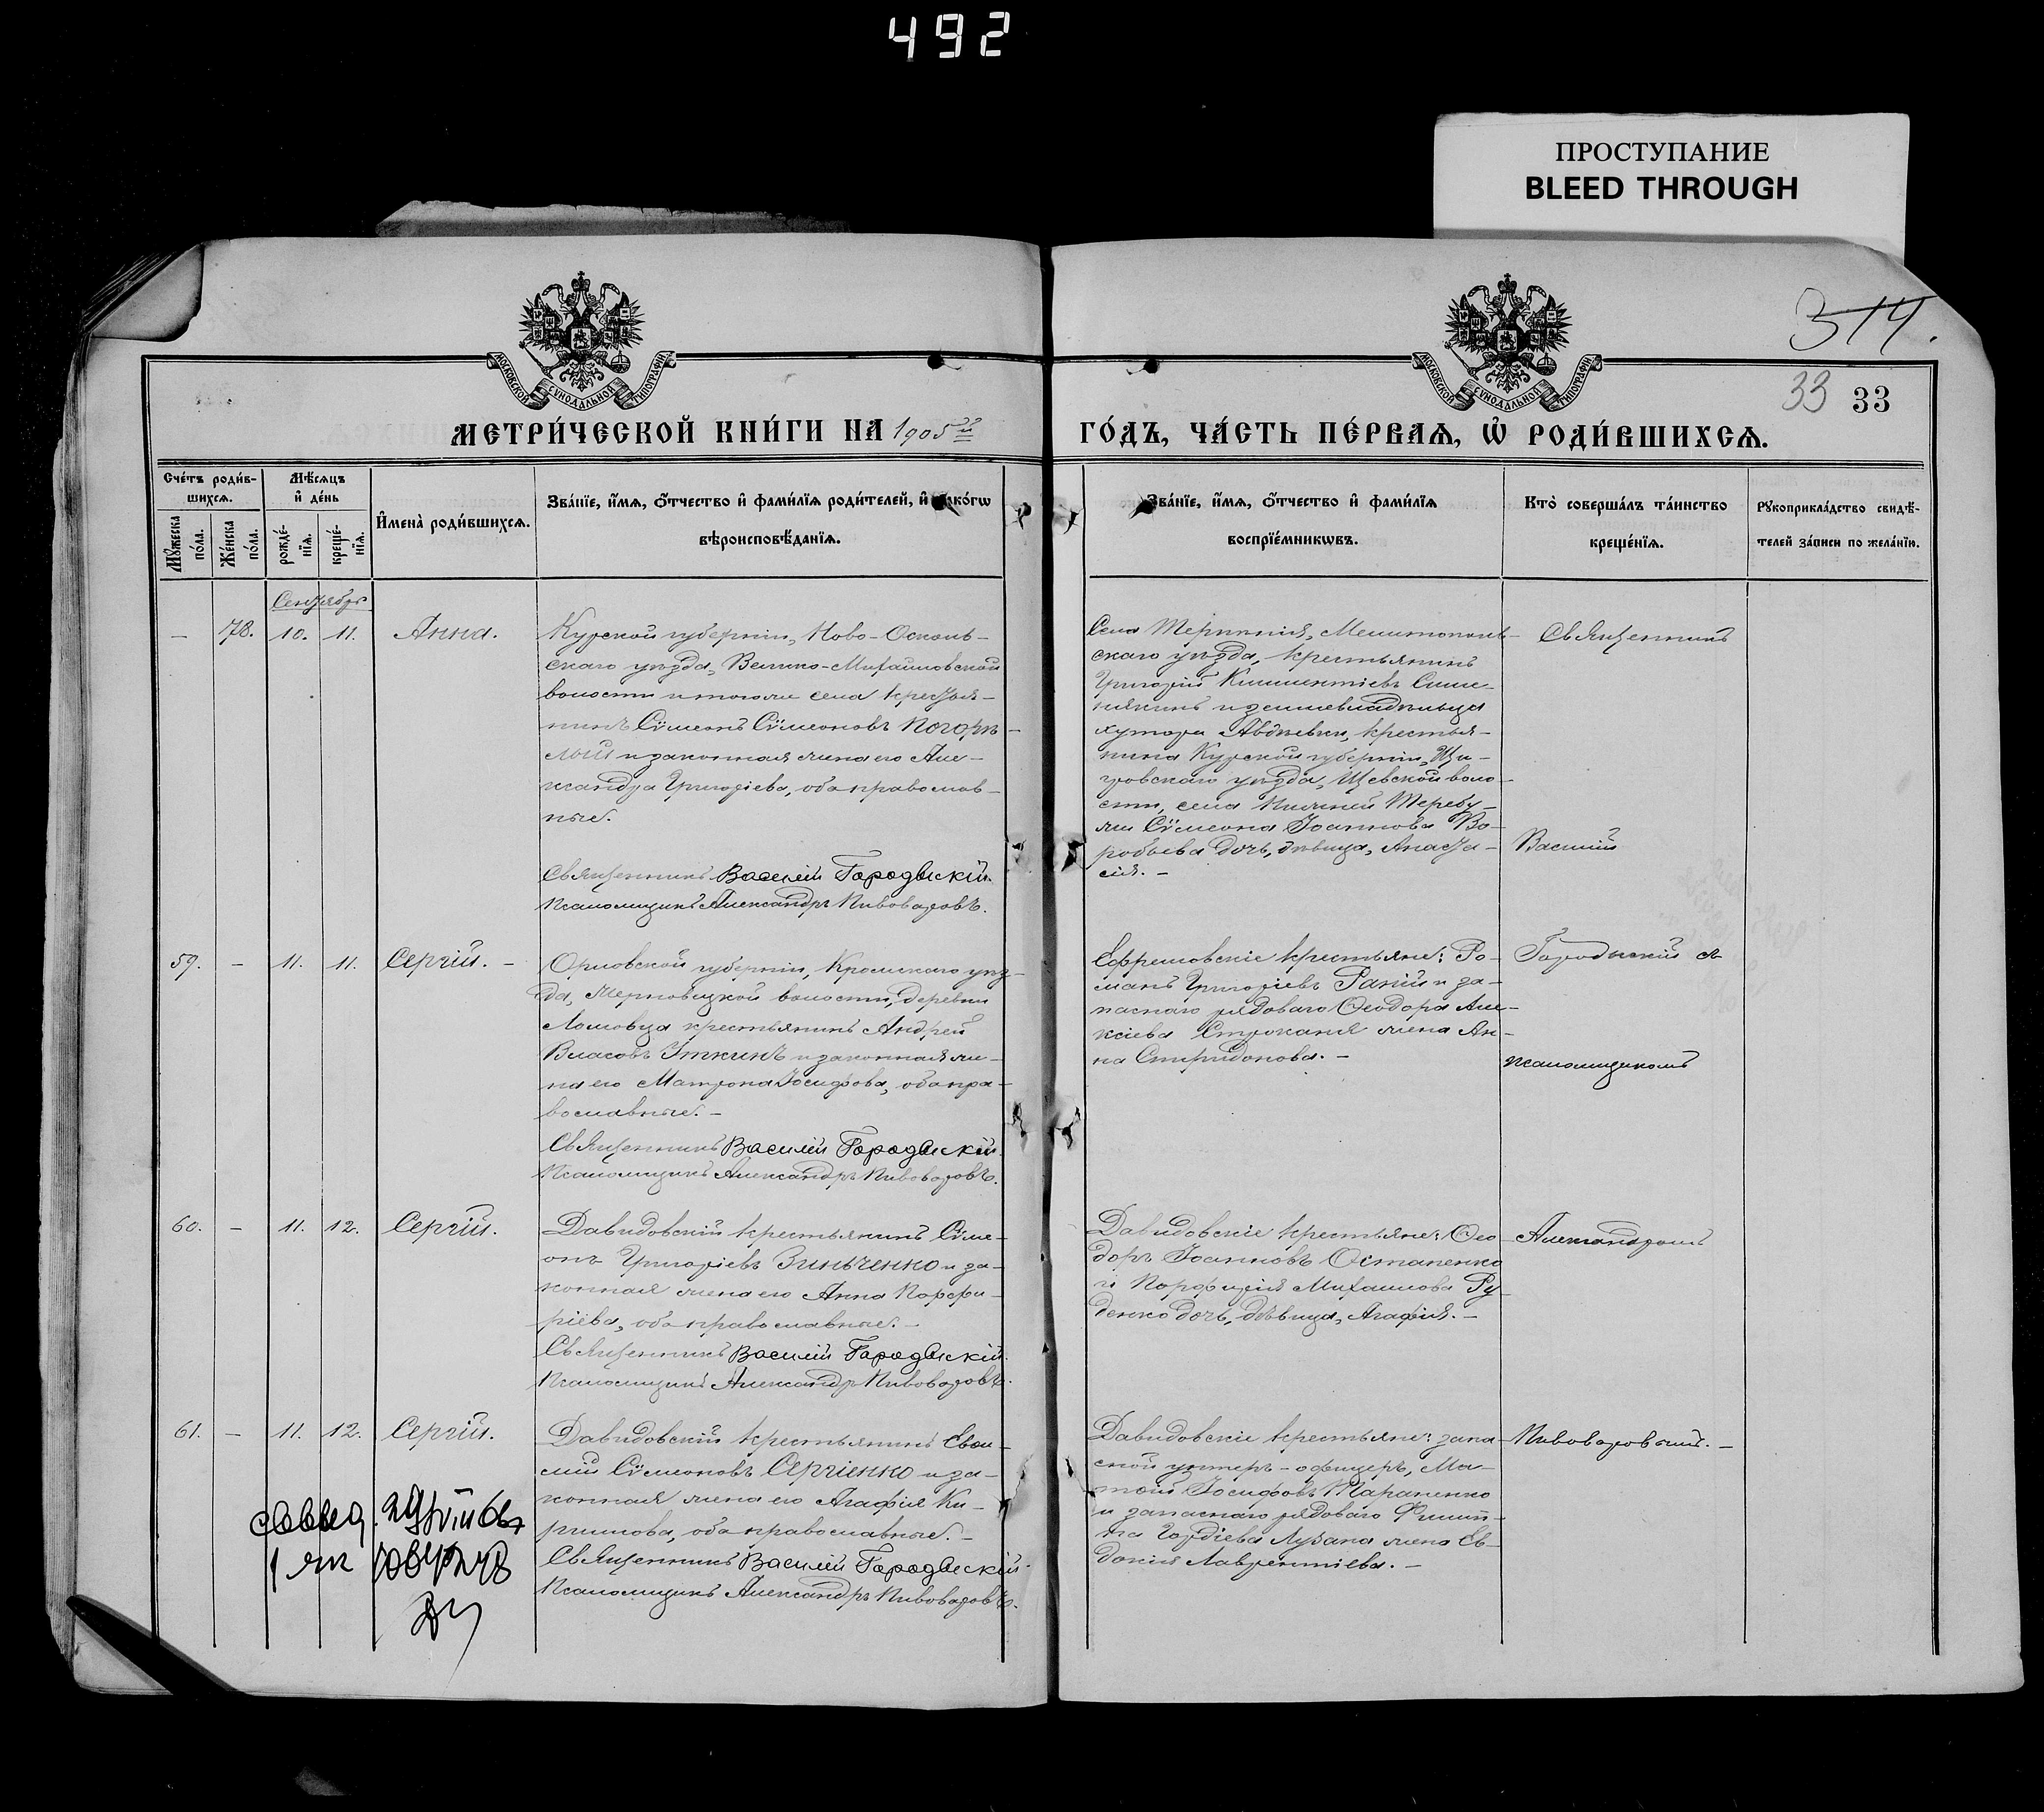 492
ПРОСТУПАНИЕ
BLEED THROUGH
МОСКОВСКОЙ СѴНОДАЛЬНОЙ ТИПОГРАФІИ
МОСКОВСКОЙ СѴНОДАЛЬНОЙ ТИПОГРАФІИ
314.
33 33
МЕТРИ́ЧЕСКОЙ КНИ́ГИ НА 1905й
ГО́ДЪ, ЧА́СТЬ ПЕ́РВАѦ, Ѡ҆ РОДИ́ВШИХСѦ.
Сче́тъ роди́в-
шихсѧ.
Мꙋ́жеска по́ла.
Же́нска по́ла.
Мѣ́сѧцъ
и҆ де́нь
рожде́-
нїѧ.
креще́-
нїѧ.
И҆мена̀ роди́вшихсѧ.
Зва́нїе, и҆́мѧ, ѻ҆́тчество и҆ фами́лїѧ роди́телей, и҆ како́гѡ
вѣроисповѣ́данїѧ.
Зва́нїе, и҆́мѧ, ѻ҆́тчество и҆ фами́лїѧ
воспрїе́мникѡвъ.
Кто̀ соверша́лъ та́инство
креще́нїѧ.
Рꙋкоприкла́дство свидѣ́-
телей за́писи по жела́нїю.
Сентябрь
— 78. 10. 11. Анна.
Курской губерніи, Ново-Осколь-
скаго уѣзда, Велико-Михайловской
волости и тогоже села крестья-
нинъ Сѵмеонъ Сѵмеоновъ Погорѣ-
лый и законная жена его Але-
ксандра Григоріева, оба православ-
ные.
Священникъ Василій Городискій.
Псаломщикъ Александръ Пивоваровъ.
Села Терпѣнія, Мелитополь-
скаго уѣзда, крестьянинъ
Григорій Климентіевъ
и землевладѣльца
хутора Авдѣевки, крестья-
нина Курской губерніи, Щи-
гровскаго уѣзда, воло-
сти, села Теребу-
жи Сѵмеона Іоаннова Во-
робьева дочь, дѣвица, Анаста-
сія. —
Священникъ
Василій
59. — 11. 11. Сергій. —
Орловской губерніи, Кромскаго уѣз-
да, волости, деревни
Ломовца крестьянинъ Андрей
Власовъ Уткинъ и законная же-
на его Матрона Іосифова, оба пра-
вославные. —
Священникъ Василій Городискій
Псаломщикъ Александръ Пивоваровъ.
Ефремовскіе крестьяне: Ро-
манъ Григоріевъ и за-
паснаго рядоваго Ѳеодора Але-
ксіева жена Ан-
на Спиридонова. —
Городискій съ
псаломщикомъ
60. — 11. 12. Сергій.
Давидовскій крестьянинъ Сѵме-
онъ Григоріевъ Зинченко и за-
конная жена его Анна Порфи-
ріева, оба православные. —
Священникъ Василій Городискій.
Псаломщикъ Александръ Пивоваровъ.
Давидовскіе крестьяне: Ѳео-
доръ Іоанновъ Остапенко
и Порфирія Михаилова Ру-
денко дочь, дѣвица, Агафія. —
Александромъ
61. — 11. 12. Сергій.
Давидовскій крестьянинъ Евѳи-
мій Сѵмеоновъ Сергіенко и за-
конная жена его Агафія Ки-
риллова, оба православные. —
Священникъ Василій Городискій.
Псаломщикъ Александръ Пивоваровъ.
Давидовскіе крестьяне: запа-
сной унтеръ-офицеръ, Ма-
тѳей Іосифовъ Тараненко
и запаснаго рядоваго Филип-
па Гордіева жена Ев-
докія Лаврентіева. —
Пивоваровымъ. —